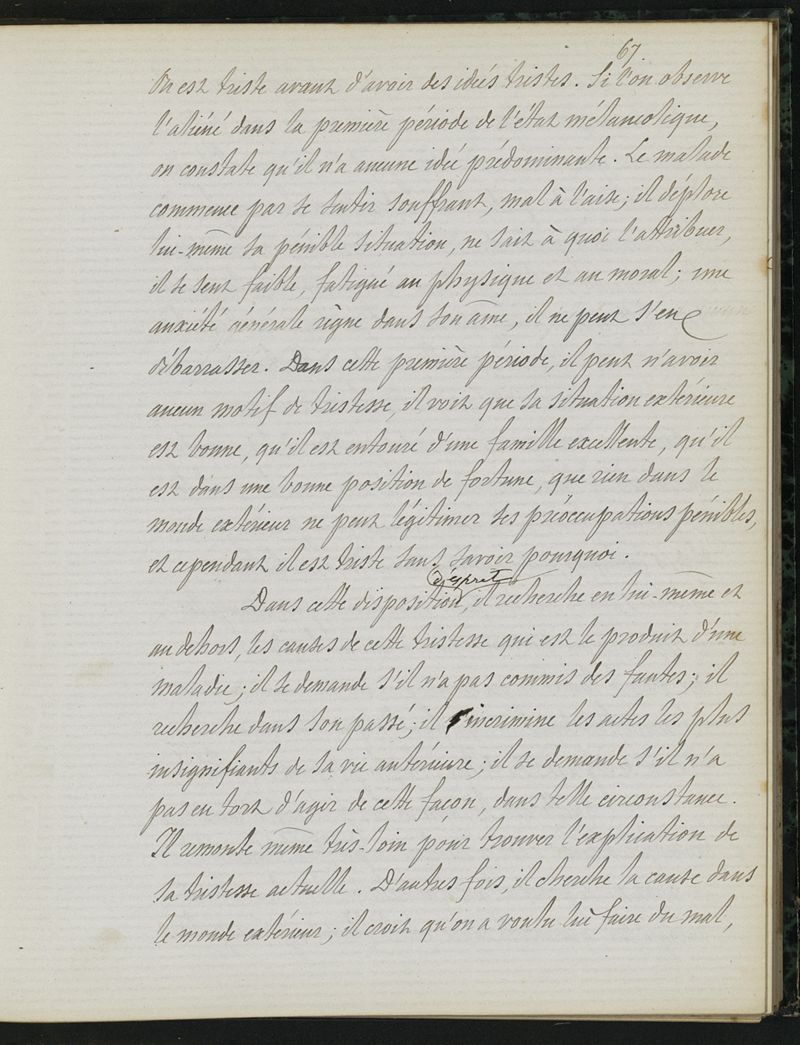 67
On est triste avant d'avoir des idées tristes. Si l'on observe
l'aliéné dans la première période de l'état mélancolique,
on constate qu'il n'a aucune idée prédominante. Le malade
commence par se sentir souffrant, mal à l'aise; il déplore
lui-même sa pénible situation, ne sait à quoi l'attribuer,
il se sent faible, fatigué au physique et au moral; une
anxiété générale règne dans son âme, il ne peut s'en
débarrasser. Dans cette première période, il peut n'avoir
aucun motif de tristesse, il voit que sa situation extérieure
est bonne, qu'il est entouré d'une famille excellente, qu'il
est dans une bonne position de fortune, que rien dans le
monde extérieur ne peut légitimer ses préoccupations pénibles,
et cependant il est triste sans savoir pourquoi.
d'esprit
Dans cette disposition, il recherche en lui-même et
au dehors, les causes de cette tristesse qui est le produit d'une
maladie; il se demande s'il n'a pas commis des fautes; il
recherche dans son passé; il incrimine les actes les plus
insignifiants de sa vie antérieure; il se demande s'il n'a
pas eu tort d'agir de cette façon, dans telle circonstance.
Il remonte même très-loin pour trouver l'explication de
sa tristesse actuelle. D'autres fois, il cherche la cause dans
le monde extérieur; il croit qu'on a voulu lui faire du mal,